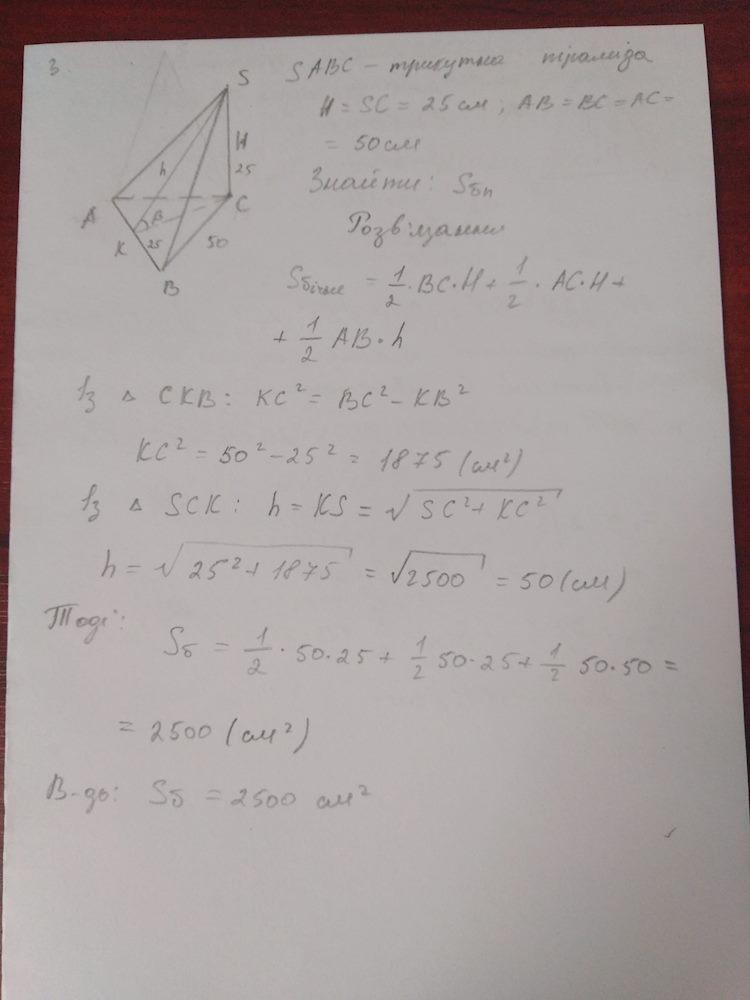 3
S
H
h
25
A
C
β
K
25
50
B
SABC - трикутна піраміда
H = SC = 25 см; AB = BC = AC =
= 50 см
Знайти: Sбп
Розв'язання
Sбічне = 1/2 · BC · H + 1/2 · AC · H +
+ 1/2 AB · h
Із △ CKB: KC² = BC² - KB²
KC² = 50² - 25² = 1875 (см²)
Із △ SCK: h = KS = √SC² + KC²
h = √25² + 1875 = √2500 = 50 (см)
Тоді:
Sб = 1/2 · 50 · 25 + 1/2 50 · 25 + 1/2 50 · 50 =
= 2500 (см²)
В-дь: Sб = 2500 см²